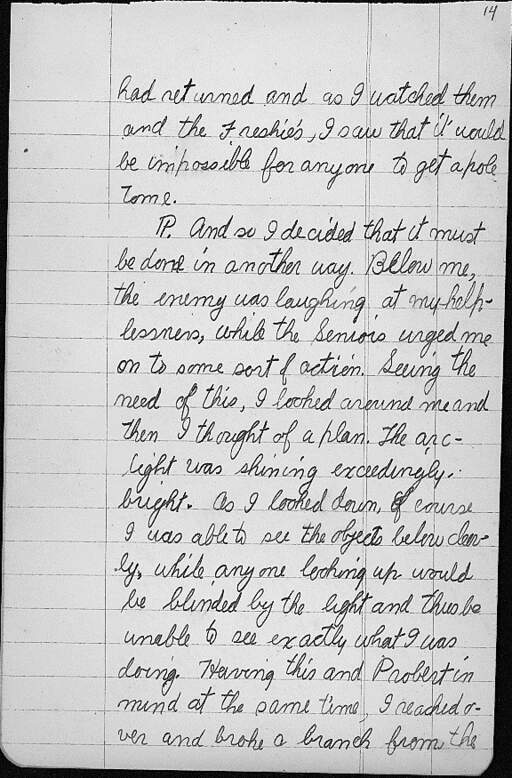 14
had returned and as I watched them
and the Freshies, I saw that it would
be impossible for anyone to get a pole
to me.
P. And so I decided that it must
be done in another way. Below me,
the enemy was laughing at my help-
lessness, while the Seniors urged me
on to some sort of action. Seeing the
need of this, I looked around me and
then I thought of a plan. The arc-
light was shining exceedingly
bright. As I looked down, of course
I was able to see the objects below clear-
ly, while anyone looking up would
be blinded by the light and thus be
unable to see exactly what I was
doing. Having this and Probert in
mind at the same time, I reached o-
ver and broke a branch from the